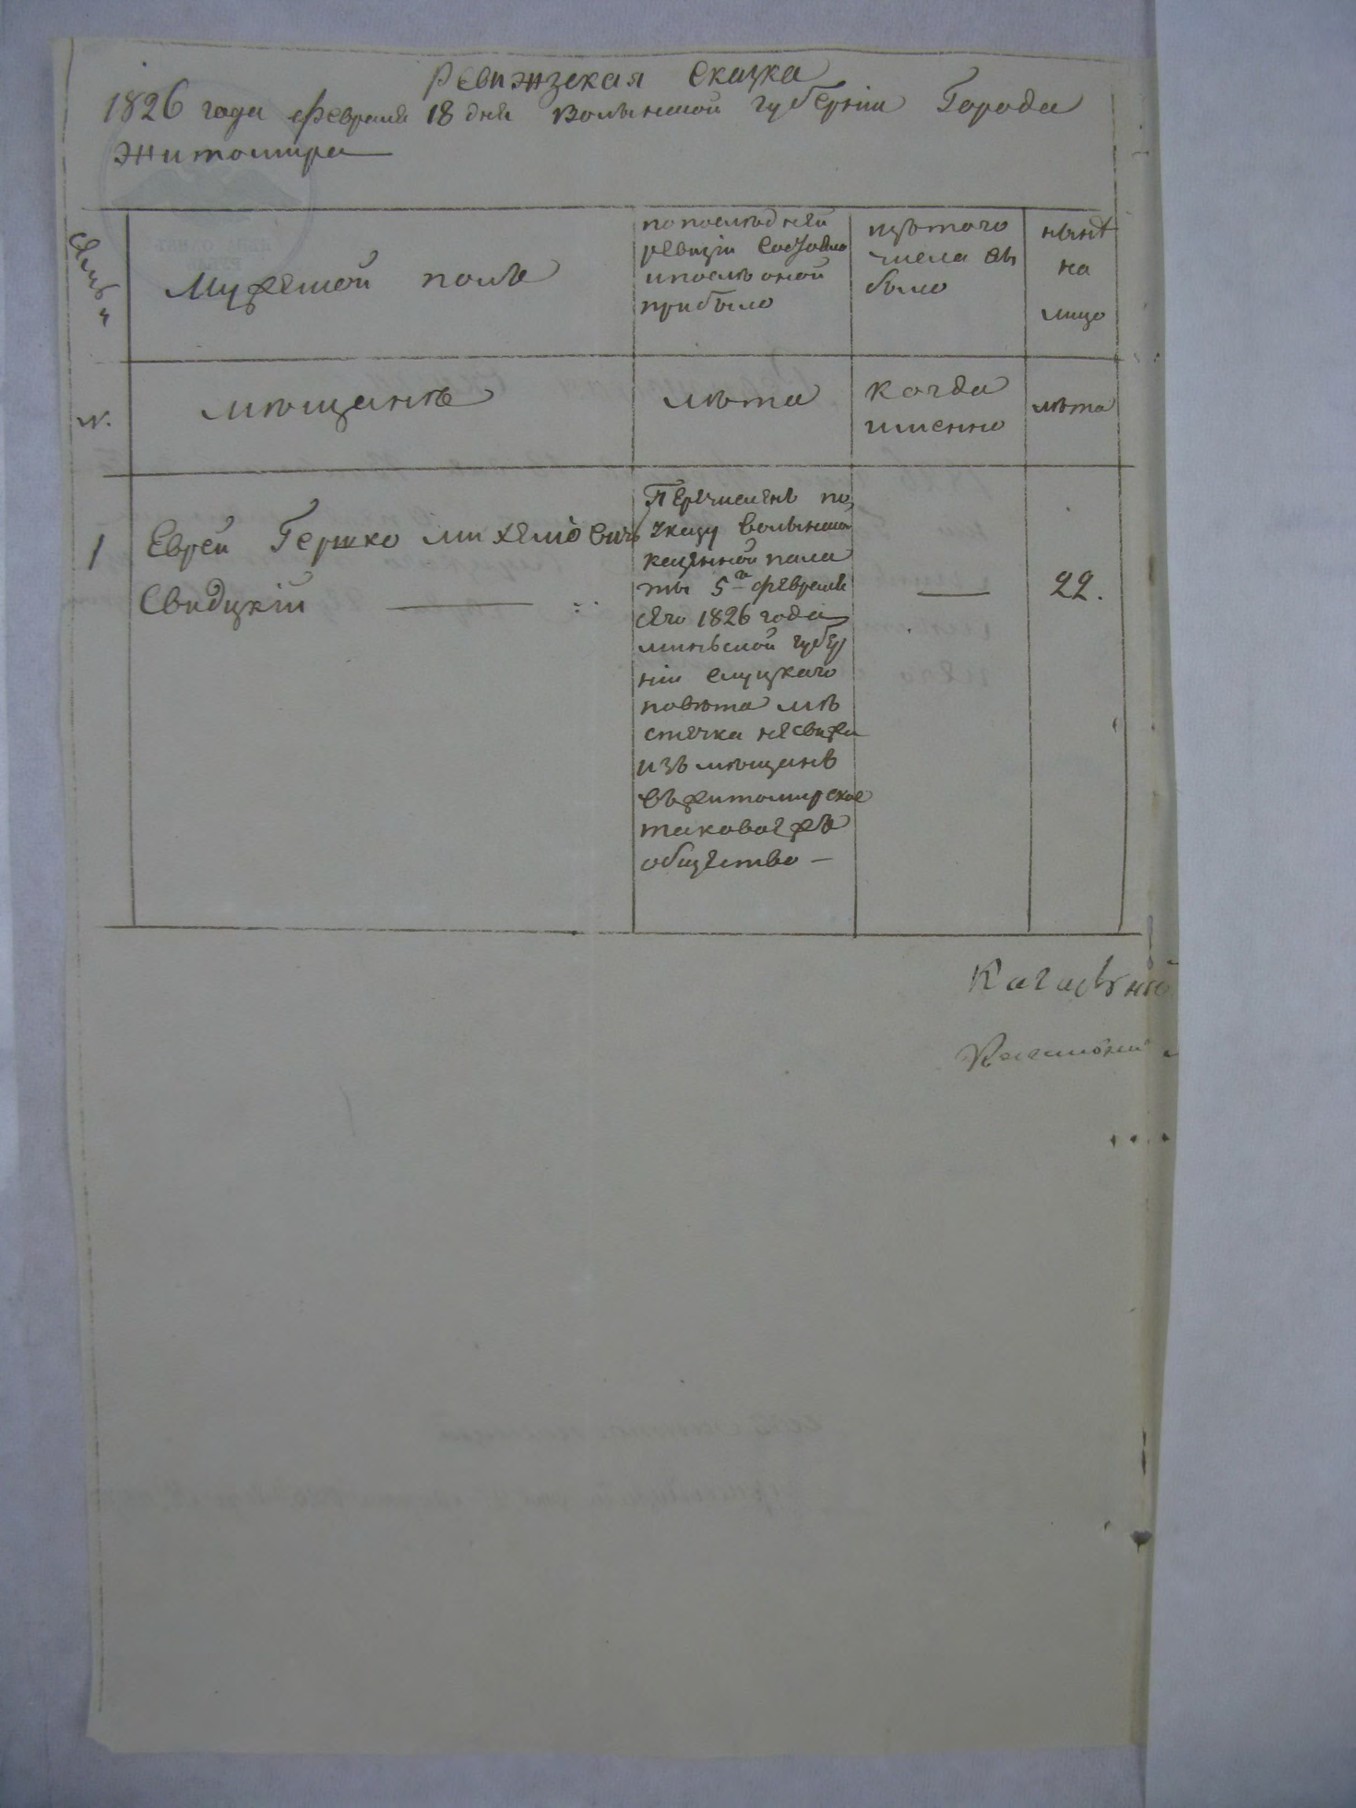 Ревизжская сказка
1826 года февраля 18 дня Волынской губернiи Города
Житомира
Семьи
Мужеской полъ
по последней
ревизiи состояло
и после оной
прибыло
изъ того
числа вы
было
нынѣ
на
лицо
№.
мѣщанѣ
лѣта
когда
именно
лѣта
1
Еврей Гершко Михелiовичъ
Свидцкiй
22.
Перечисленъ по
указу Волынской
казенной пала
ты 5го февраля
сего 1826 года
минской губер
нiи слуцкаго
повѣта мѣ
стечка несвижа
изъ мѣщанъ
въ житомирское
таковое жъ
общество —